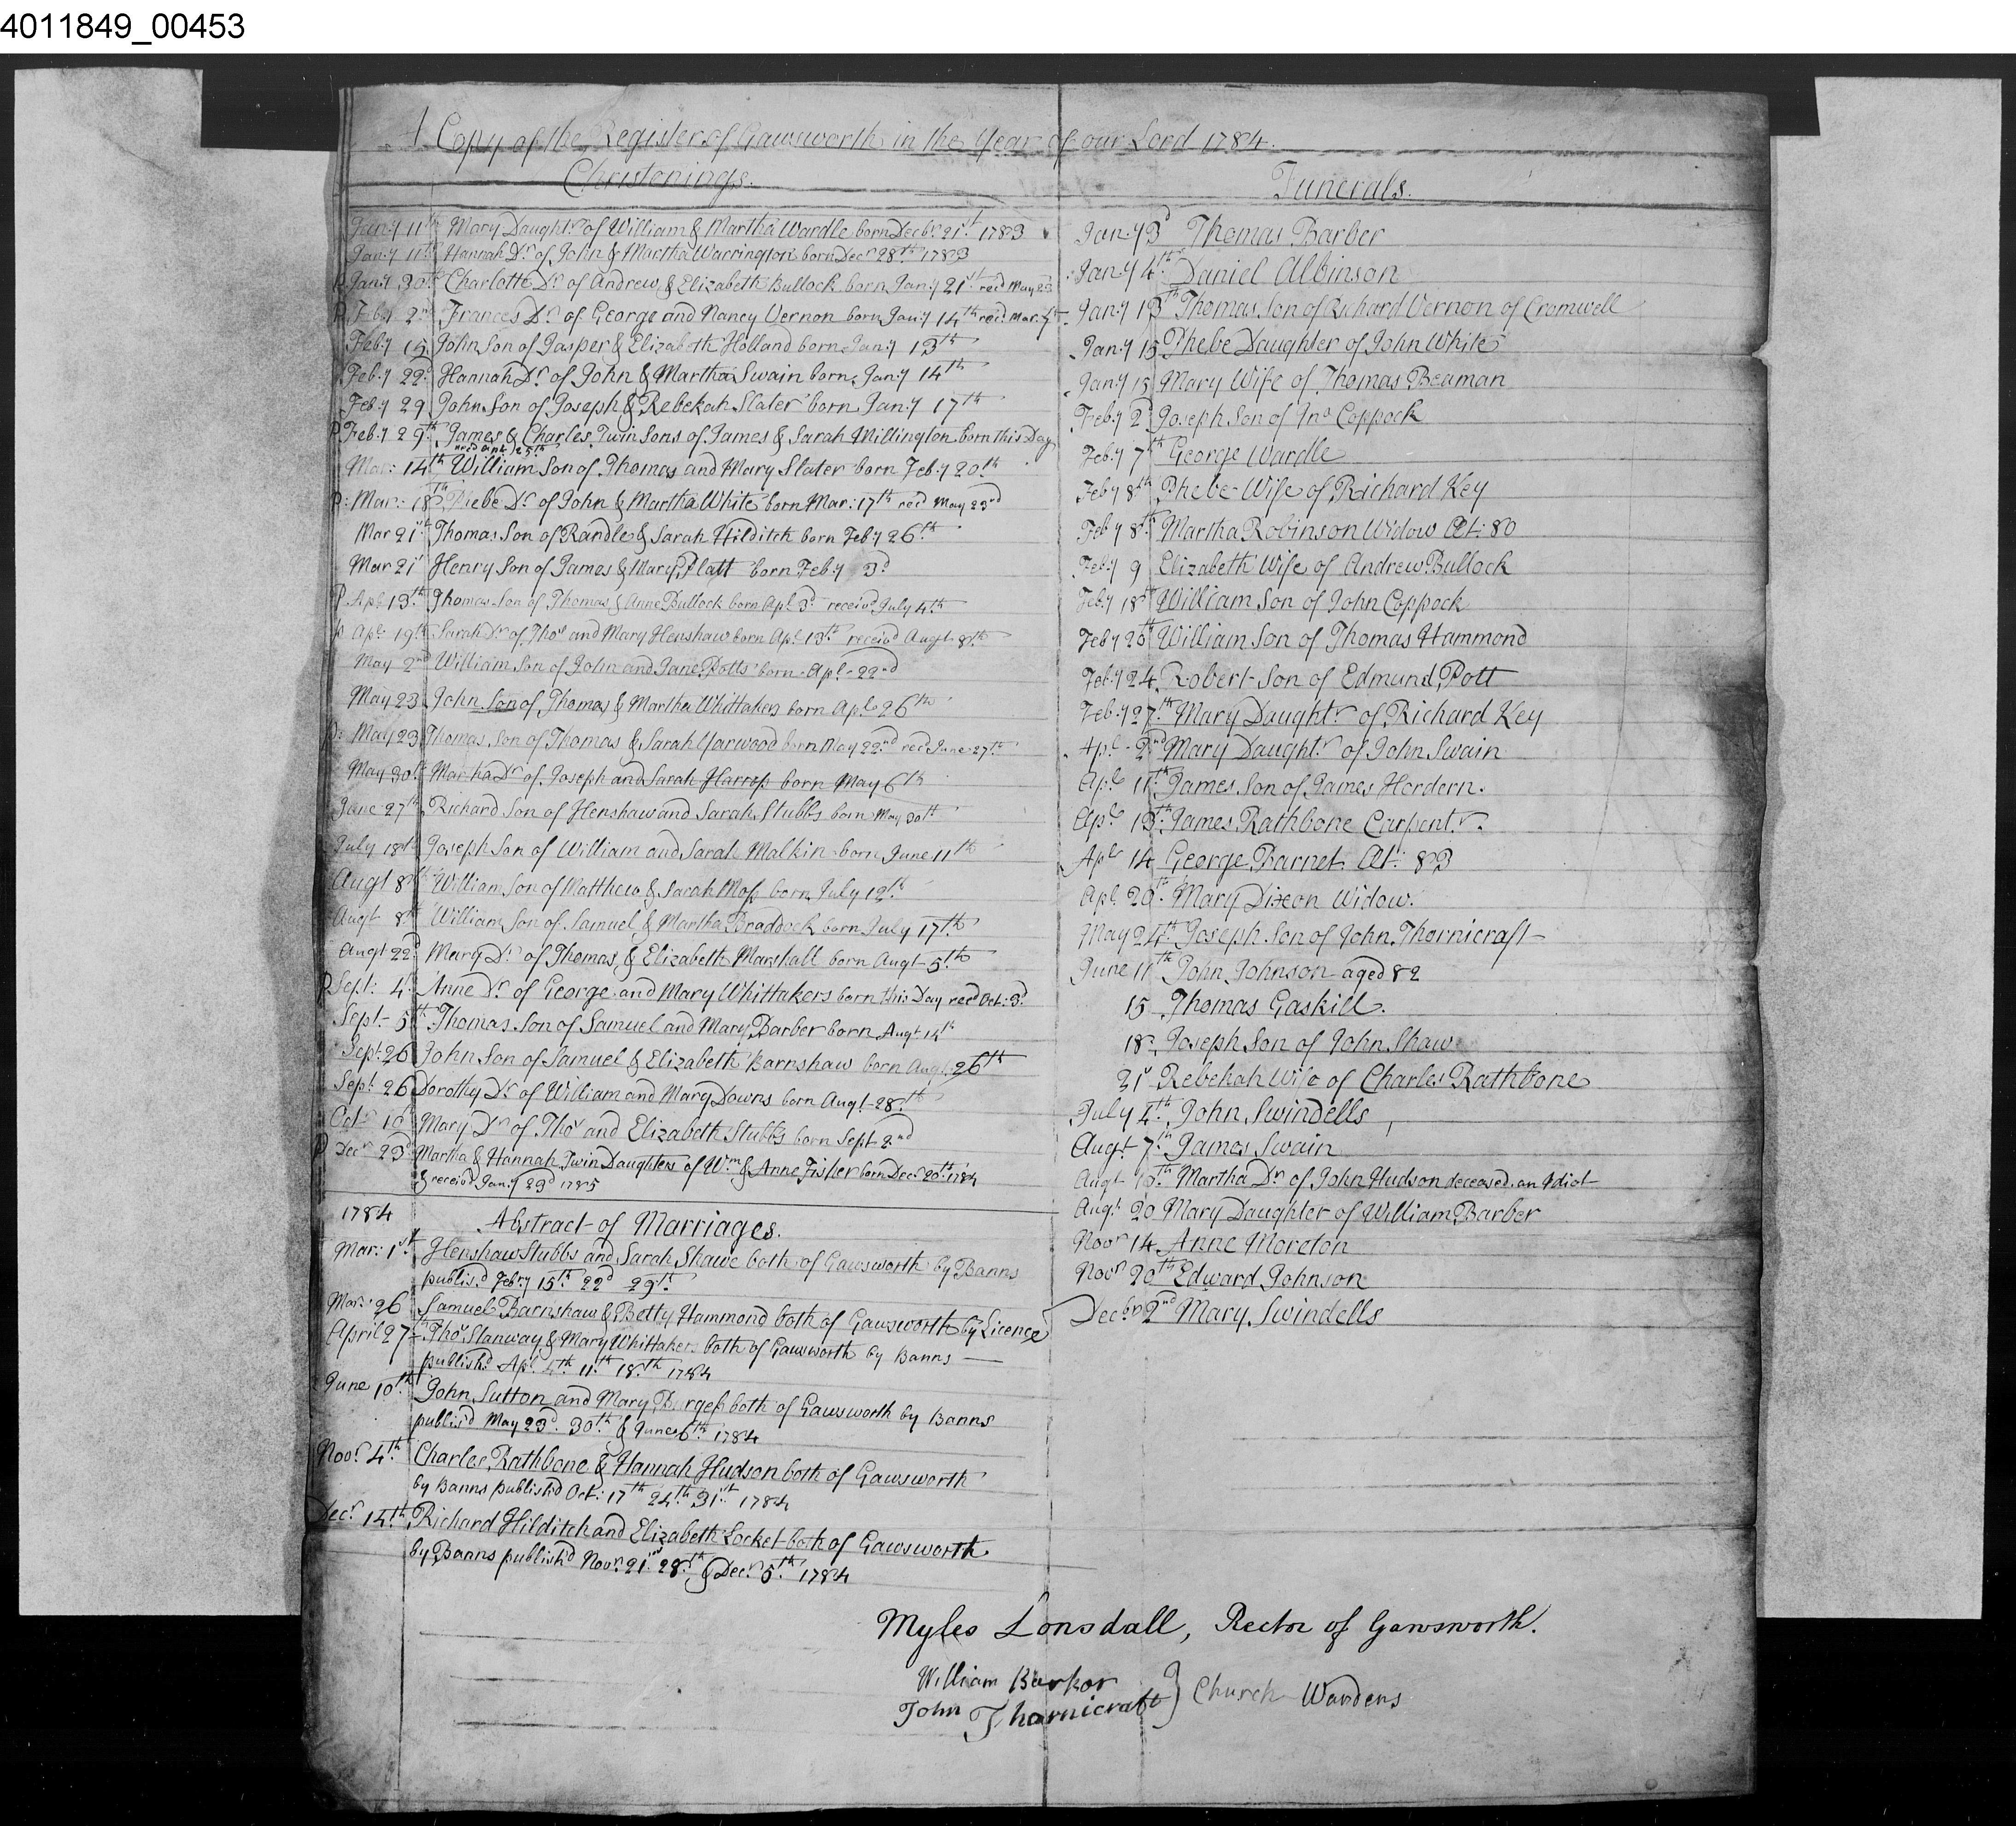 4011849_00453
A Copy of the Register of Gawsworth in the Year of our Lord 1784.
Christenings.
Jan:y 11th Mary Daughtr of William & Martha Wardle born Decbr 21st 1783
Jan:y 11th Hannah Dr of John & Martha Warrington born Decr 28th 1783
p Jan:y 30th Charlotte Dr of Andrew & Elizabeth Bullock born Jan:y 21st recd May 23
p Feb:y 2nd Frances Dr of George and Nancy Vernon born Jan:y 14th recd Mar: 7th
Feb:y 15 John Son of Jasper & Elizabeth Holland born Jan:y 13th
Feb:y 22d Hannah Dr of John & Martha Swain born Jan:y 14th
Feb:y 29 John Son of Joseph & Rebekah Slater born Jan:y 17th
p Feb:y 29th James & Charles Twin Sons of James & Sarah Millington born this Day
recd Apl: 25th
Mar: 14th William Son of Thomas and Mary Slater born Feb:y 20th
p: Mar: 18th Phebe Dr of John & Martha White born Mar: 17th recd May 23rd
Mar 21st Thomas Son of Randle & Sarah Hilditch born Feb:y 26th
Mar 21st Henry Son of James & Mary Platt born Feb:y 3d
p Apl: 13th Thomas Son of Thomas & Anne Bullock born Apl: 3d receivd July 4th
p Apl: 19th Sarah Dr of Thos and Mary Henshaw born Apl: 13th receivd Augt 8th
May 2nd William Son of John and Jane Potts born Apl: 22nd
May 23 John Son of Thomas & Martha Whittakers born Apl: 26th
p: May 23 Thomas Son of Thomas & Sarah Yarwood born May 22nd recd June 27th
May 30th Martha Dr of Joseph and Sarah Harrop born May 6th
June 27th Richard Son of Henshaw and Sarah Stubbs born May 30th
July 18th Joseph Son of William and Sarah Malkin born June 11th
Augt 8th William Son of Matthew & Sarah Moss born July 12th
Augt 8th William Son of Samuel & Martha Braddock born July 17th
Augt 22d Mary Dr of Thomas & Elizabeth Marshall born Augt 5th
p Sept: 4 Anne Dr of George and Mary Whittakers born this Day recd Oct: 3d
Sept: 5th Thomas Son of Samuel and Mary Barber born Augt 14th
Sept: 26 John Son of Samuel & Elizabeth Barnshaw born Augt 26th
Sept: 26 Dorothy Dr of William and Mary Downs born Augt 28th
Octr 10 Mary Dr of Thos and Elizabeth Stubbs born Sept 2nd
p Decr 23d Martha & Hannah Twin Daughters of Wm & Anne Fisher born Decr 20th 1784
& receivd Jan:y 23d 1785
1784 Abstract of Marriages.
Mar: 1st Henshaw Stubbs and Sarah Shawe both of Gawsworth by Banns
publis'd Febry 15th 22d 29th
Mar: 26 Samuel Barnshaw & Betty Hammond both of Gawsworth by Licence
April 27 Thos Stanway & Mary Whittaker both of Gawsworth by Banns
publish'd Apl. 4th 11th 18th 1784
June 10th John Sutton and Mary both of Gawsworth by Banns
publis'd May 23d. 30th & June 6th 1784
Novr 4th Charles Rathbone & Hannah Hudson both of Gawsworth
by Banns publish'd Oct: 17th 24th 31st 1784
Decr 14th Richard Hilditch and Elizabeth Locket both of Gawsworth
by Banns publish'd Novr 21st 28th & Decr 5th 1784
Funerals.
Jan:y 3d Thomas Barber
Jan:y 4th Daniel Albinson
Jan:y 13th Thomas Son of Richard Vernon of Cromwell
Jan:y 15 Phebe Daughter of John White
Jan:y 15 Mary Wife of Thomas Beaman
Feb:y 2d Joseph Son of Jno Coppock
Feb:y 7th George Wardle
Feb:y 8th Phebe Wife of Richard Key
Feb:y 8th Martha Robinson Widow Æt: 80
Feb:y 9 Elizabeth Wife of Andrew Bullock
Feb:y 18th William Son of John Coppock
Feb:y 20th William Son of Thomas Hammond
Feb:y 24 Robert Son of Edmund Pott
Feb:y 27th Mary Daughtr of Richard Key
Apl: 2nd Mary Daughtr of John Swain
Apl: 11th James Son of James Hordern.
Apl: 13th James Rathbone Carpentr.
Apl: 14 George Barnet Æt: 83
Apl: 20th Mary Dixon Widow.
May 24th Joseph Son of John Thornicraft
June 11th John Johnson aged 82
15 Thomas Gaskill.
18 Joseph Son of John Shaw
21st Rebekah Wife of Charles Rathbone
July 4th John Swindells
Augt 7th James Swain
Augt 10th Martha Dr of John Hudson deceased an Idiot
Augt 20 Mary Daughter of William Barber
Novr 14 Anne Moreton
Novr 20th Edward Johnson
Decbr 2nd Mary Swindells
Myles Lonsdall, Rector of Gawsworth.
William Barkor
John Thornicraft } Church Wardens